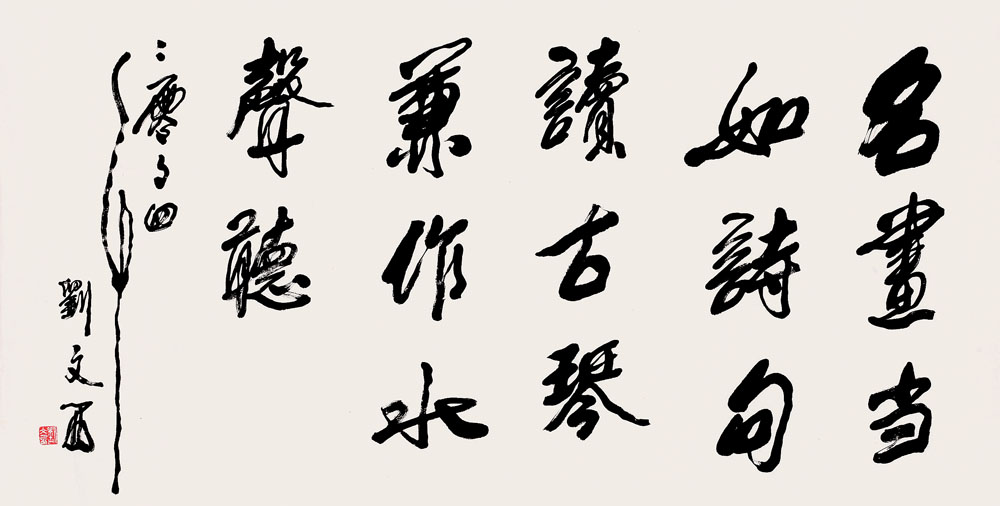 名畫当
如詩句
讀古琴
兼作水
聲聽
二零々四
年
劉文西